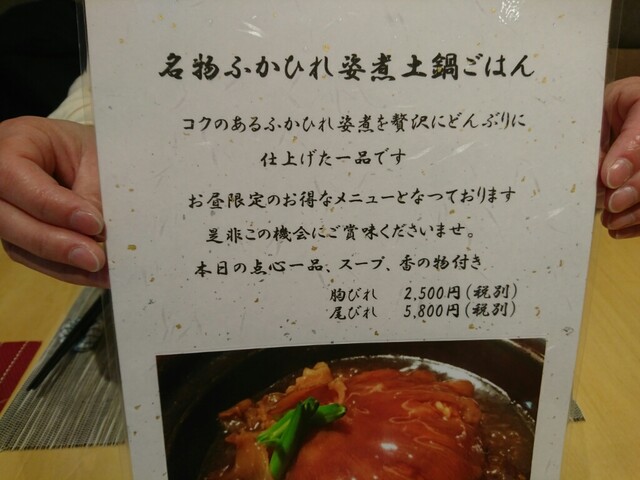 名物ふかひれ姿煮土鍋ごはん
コクのあるふかひれ姿煮を贅沢にどんぶりに
仕上げた一品です
お昼限定のお得なメニューとなっております
是非この機会にご賞味くださいませ。
本日の点心一品、スープ、香の物付き
胸びれ 2,500円(税別)
尾びれ 5,800円(税別)